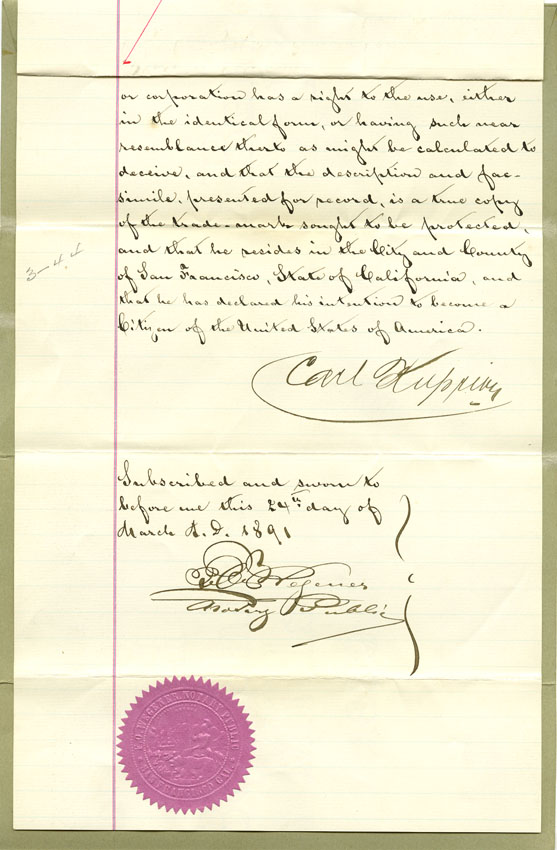 or corporation has a right to the use, either
in the identical form, or having such near
resemblance therto as might be calculated to
deceive, and that the description and fac-
simile, presented for record, is a true copy
of the trade-mark sought to be protected,
and that he resides in the City and County
of San Francisco, State of California, and
that he has declared his intention to become a
Citizen of the United States of America.
3-44
Carl
Subscribed and sworn to
before me this 24th day of
March A.D. 1891
Wegener
Notary Public
WEGENER, NOTARY PUBLIC
SAN FRANCISCO CAL.